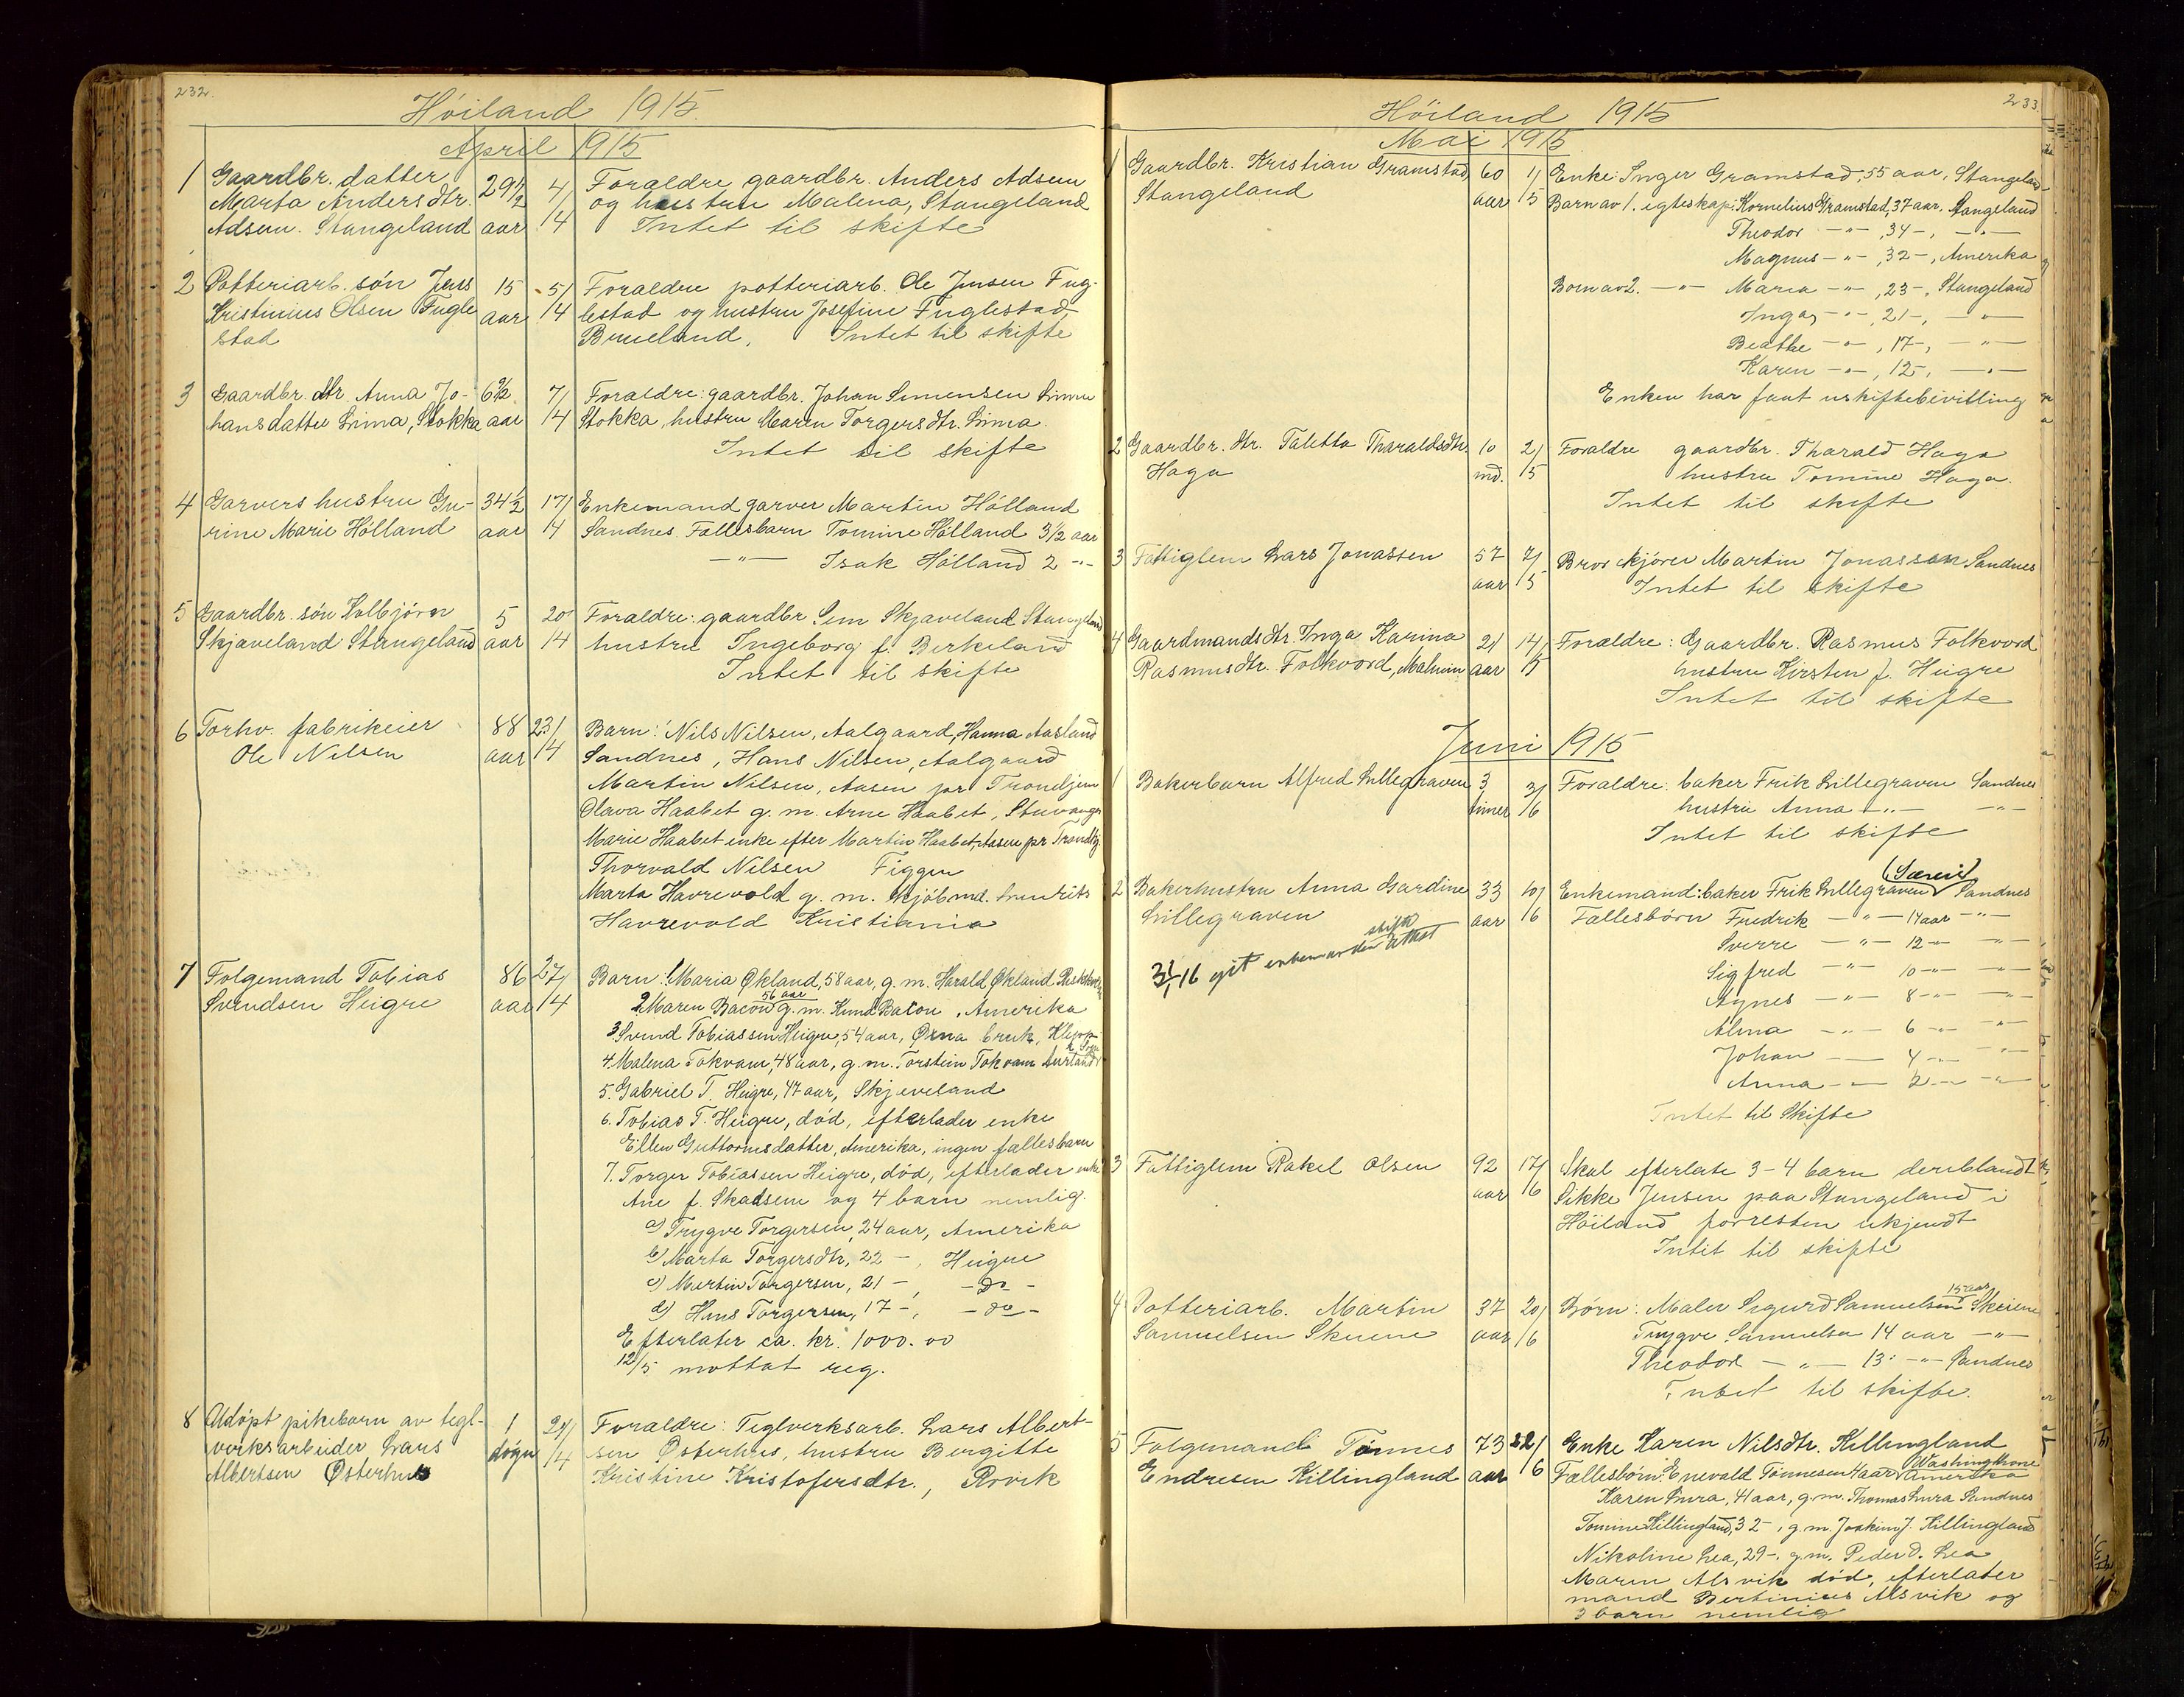 232.
Höiland 1915.
April 1915
1 Gaardbr. datter 29 1/2 4/ Forældre gaardbr. Anders Adsem
Marta Andersdtr. aar 14 og hustru Malena, Stangeland
Adsem. Stangeland Intet til skifte
2 Potteriarb. søn Jens 15 5/ Forældre potteriarb. Ole Jensen Fug-
Kristinius Olsen Fugle aar 14 lestad og hustru Josefine Fuglestad
stad Brueland, Intet til skifte
3 Gaardbr. dtr. Anna Jo- 6 1/2 7/ Forældre: gaardbr. Johan Simensen Lima
hansdatter Lima, Stokka aar 14 Stokka, hustru Maren Torgersdtr. Lima.
Intet til skifte
4 Garvers hustru Gu- 34 1/2 17/ Enkemand garver Martin Hölland
rine Marie Hölland aar 14 Sandnes. Fællesbarn Tomine Hölland 3 1/2 aar
-"- Isak Hölland 2 -"-
5 Gaardbr. søn Kolbjörn 5 20 Forældre: gaardbr. Sem Skjæveland Stangeland
Skjæveland Stangeland aar 14 hustru Ingeborg f. Birkeland
Intet til skifte
6 Forhv. fabrikeier 88 23/ Barn: Nils Nilsen, Aalgaard, Hanna Aasland
Ole Nilsen aar 14 Sandnes, Hans Nilsen, Aalgaard
Martin Nilsen, Aasen pr Trondjem
Olava Haabet g. m. Arne Haabet, Stavanger
Marie Haabet enke efter Martin Haabet, Aasen pr Trondhj.
Thorvald Nilsen Figgen
Marta Havrevold g. m. kjöbmd. Lauritz
Havrevold Kristiania
7 Folgemand Tobias 86 27/ Barn: 1 Maria Økland, 58 aar, g. m. Harald Økland
Svendsen Heigre aar 14 2 Maren Bacon 56 aar g. m. Knud Bacon, Amerika
3. Svend Tobiassen Heigre, 54 aar, Orna bruk, Klepp
4. Malena Tokvam, 48 aar, g. m. Torstein Tokvam Aurland i Sogn
5. Gabriel T. Heigre, 47 aar, Skjæveland
6. Tobias T. Heigre, död, efterlader enke
Ellen Guttormsdatter, Amerika, ingen fællesbarn
7. Torger Tobiassen Heigre, död, efterlader enke
Ane f. Skadsem og 4 barn nemlig.
a) Trygve Torgersen, 24 aar, Amerika
b) Marta Torgersdtr, 22 -, Heigre
c) Martin Torgersen, 21 -, - do -
d) Hans Torgersen, 17 -, - do -
Efterlater ca. kr. 1000.00
12/5 mottat reg.
8 Udöpt pikebarn av tegl- 1 29/ Forældre: Teglverksarb. Lars Albert-
verksarbeider Lars døgn 14 sen Østerhus, hustru Bergitte
Albertsen Østerhus Kristine Kristofersdtr., Rovik
233.
Höiland 1915
Mai 1915
1 Gaardbr. Kristian Gramstad 60 1/ Enke: Inger Gramstad, 55 aar, Stangeland
Stangeland aar 5 Barn av 1. egteskap: Kornelius Gramstad, 37 aar, Stangeland
Theodor -"- , 34 -, -"-
Magnus -"- , 32 -, Amerika
Born av 2. -"- Maria -"- , 23 -, Stangeland
Inga, -"- , 21 -, -"-
Beathe -"- , 17 -, -"-
Karen -"- , 12 -, -"-
Enken har faat uskiftebevilling
2 Gaardbr. dtr. Taletta Tharaldsdtr. 10 2/ Forældre gaardbr. Tharald Haga
Haga md. 15 hustru Tomine Haga.
Intet til skifte
3 Fattiglem Lars Jonassen 57 7/ Bror kjörer Martin Jonassen Sandnes
aar 15 Intet til skifte
4 Gaardmandsdtr. Inga Karina 21 14/ Forældre: Gaardbr. Rasmus Folkvord
Rasmusdtr. Folkvord, Malmim aar 15 hustru Kirsten f. Heigre
Intet til skifte
Juni 1915
1 Bakerbarn Alfred Lillegraven 3 3/ Forældre: baker Frik Lillegraven Sandnes
timer 16 hustru Anna -"- -"-
Intet til skifte
2 Bakerhustru Anna Gardine 33 10/ Enkemand: baker Frik Lillegraven Sandnes
Lillegraven aar 16 Fællesbörn Fredrik -"- 14 aar -"-
Sverre -"- 12 -"- -"-
3/1 16 git enkemanden skifte attest
Sigfred -"- 10 -"- -"-
Agnes -"- 8 -"- -"-
Alma -"- 6 -"- -"-
Johan -"- 4 -"- -"-
Anna -"- 2 -"- -"-
Intet til Skifte
3 Fattiglem Rakel Olsen 92 17/ Skal efterlate 3-4 barn deriblandt
aar 16 Sikke Jensen paa Stangeland i
Höiland forresten ukjendt
Intet til skifte
4 Potteriarb. Martin 37 20/ Börn: Maler Sigurd Samuelsen 15 aar Skeiene
Samuelsen Skeiene aar 16 Trygve Samuelsen 14 aar -"-
Theodor -"- 13 -"- Sandnes
Intet til skifte.
5 Folgemand Tönnes 73 22/ Enke Karen Nilsdtr. Killingland
Endresen Killingland aar 16 Fællesbörn: Enevald Tönnesen Amerika
Karen Lura, 41 aar, g. m. Thomas Lura Sandnes
Tomine Killingland, 32 -, g. m. Joakim J. Killingland
Nikoline Lea, 29 -, g. m. Peder O. Lea
Maren Alsvik död, efterlater
mand Bertinius Alsvik og
3 barn nemlig